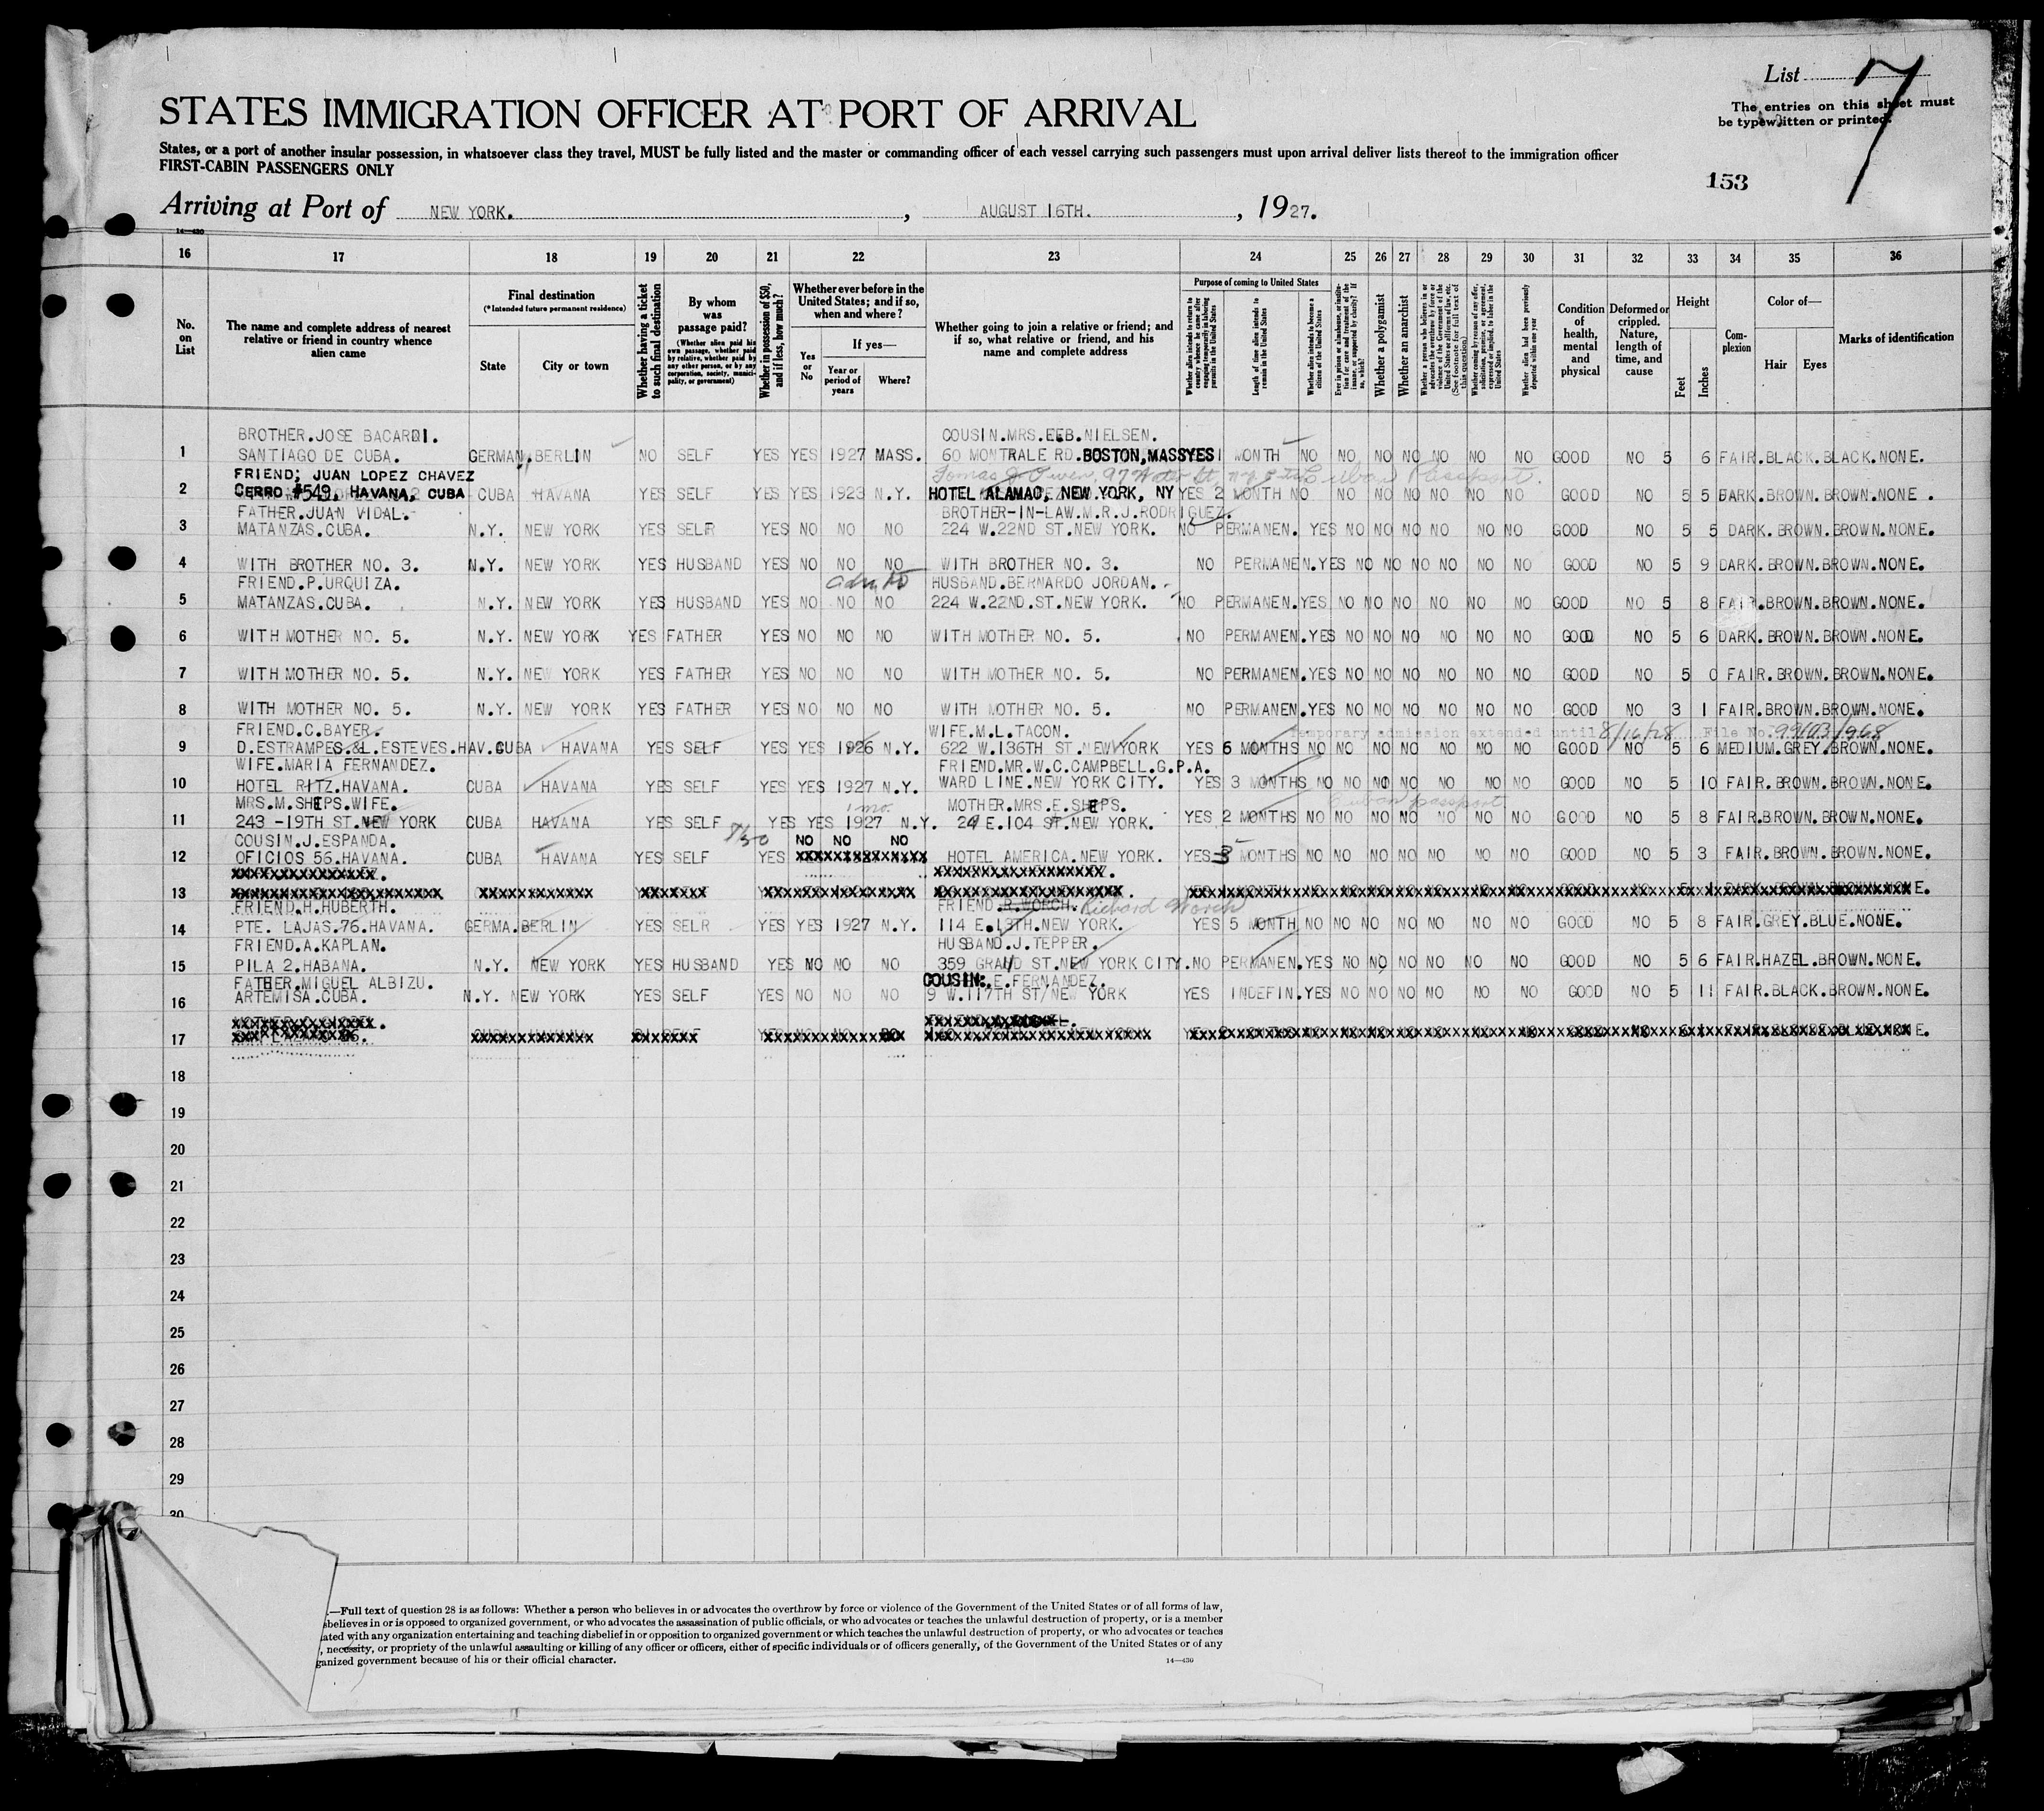 List 7
STATES IMMIGRATION OFFICER AT PORT OF ARRIVAL
The entries on this sheet must
be typewritten or printed.
States, or a port of another insular possession, in whatsoever class they travel, MUST be fully listed and the master or commanding officer of each vessel carrying such passengers must upon arrival deliver lists thereof to the immigration officer
FIRST-CABIN PASSENGERS ONLY
153
Arriving at Port of NEW YORK. , AUGUST 16TH. , 1927.
14—430
16 17 18 19 20 21 22 23 24 25 26 27 28 29 30 31 32 33 34 35 36
No. on List
The name and complete address of nearest relative or friend in country whence alien came
Final destination (*Intended future permanent residence)
State
City or town
Whether having a ticket to such final destination
By whom was passage paid? (Whether alien paid his own passage, whether paid by relative, whether paid by any other person, or by any corporation, society, municipality, or government)
Whether in possession of $50, and if less, how much?
Whether ever before in the United States; and if so, when and where?
Yes or No
If yes—
Year or period of years
Where?
Whether going to join a relative or friend; and if so, what relative or friend, and his name and complete address
Purpose of coming to United States
Whether alien intends to return to country whence he came after engaging temporarily in laboring pursuits in the United States
Length of time alien intends to remain in the United States
Whether alien intends to become a citizen of the United States
Ever in prison or almshouse, or institution for care and treatment of the insane, or supported by charity? If so, which?
Whether a polygamist
Whether an anarchist
Whether a person who believes in or advocates the overthrow by force or violence of the Government of the United States or all forms of law, etc. (See footnote for full text of this question)
Whether coming by reason of any offer, solicitation, promise, or agreement, expressed or implied, to labor in the United States
Whether alien had been previously deported within one year
Condition of health, mental and physical
Deformed or crippled. Nature, length of time, and cause
Height
Feet
Inches
Complexion
Color of—
Hair
Eyes
Marks of identification
BROTHER.JOSE BACARDI. COUSIN.MRS.EEB.NIELSEN.
1 SANTIAGO DE CUBA. GERMAN. BERLIN NO SELF YES YES 1927 MASS. 60 MONTRALE RD.BOSTON,MASS YES 1 MONTH NO NO NO NO NO NO NO GOOD NO 5 6 FAIR.BLACK.BLACK.NONE.
FRIEND; JUAN LOPEZ CHAVEZ Cuban Passport.
2 CERRO #549, HAVANA, CUBA CUBA HAVANA YES SELF YES YES 1923 N.Y. HOTEL ALAMAC, NEW YORK, NY YES 2 MONTH NO NO NO NO NO NO NO GOOD NO 5 5 DARK.BROWN.BROWN.NONE.
FATHER.JUAN VIDAL. BROTHER-IN-LAW.M.R.J.RODRIGUEZ.
3 MATANZAS.CUBA. N.Y. NEW YORK YES SELF YES NO NO NO 224 W.22ND ST.NEW YORK. NO PERMANEN. YES NO NO NO NO NO NO GOOD NO 5 5 DARK.BROWN.BROWN.NONE.
4 WITH BROTHER NO. 3. N.Y. NEW YORK YES HUSBAND YES NO NO NO WITH BROTHER NO. 3. NO PERMANEN.YES NO NO NO NO NO NO GOOD NO 5 9 DARK.BROWN.BROWN.NONE.
FRIEND.P.URQUIZA. HUSBAND.BERNARDO JORDAN.
5 MATANZAS.CUBA. N.Y. NEW YORK YES HUSBAND YES NO NO NO 224 W.22ND.ST.NEW YORK. NO PERMANEN.YES NO NO NO NO NO NO GOOD NO 5 8 FAIR.BROWN.BROWN.NONE.
6 WITH MOTHER NO. 5. N.Y. NEW YORK YES FATHER YES NO NO NO WITH MOTHER NO. 5. NO PERMANEN.YES NO NO NO NO NO NO GOOD NO 5 6 DARK.BROWN.BROWN.NONE.
7 WITH MOTHER NO. 5. N.Y. NEW YORK YES FATHER YES NO NO NO WITH MOTHER NO. 5. NO PERMANEN.YES NO NO NO NO NO NO GOOD NO 5 0 FAIR.BROWN.BROWN.NONE.
8 WITH MOTHER NO. 5. N.Y. NEW YORK YES FATHER YES NO NO NO WITH MOTHER NO. 5. NO PERMANEN.YES NO NO NO NO NO NO GOOD NO 3 1 FAIR.BROWN.BROWN.NONE.
FRIEND.C.BAYER. WIFE.M.L.TACON. Temporary admission extended until 8/16/28 File No. 99103/968
9 D.ESTRAMPES.&L.ESTEVES.HAV.CUBA HAVANA YES SELF YES YES 1926 N.Y. 622 W.136TH ST.NEW YORK YES 6 MONTHS NO NO NO NO NO NO NO GOOD NO 5 6 MEDIUM.GREY.BROWN.NONE.
WIFE.MARIA FERNANDEZ. FRIEND.MR.W.C.CAMPBELL.G.P.A.
10 HOTEL RITZ.HAVANA. CUBA HAVANA YES SELF YES YES 1927 N.Y. WARD LINE.NEW YORK CITY. YES 3 MONTHS NO NO NO NO NO NO NO GOOD NO 5 10 FAIR.BROWN.BROWN.NONE.
MRS.M.SHEPS.WIFE. 1 mo. MOTHER.MRS.E.SHEPS. Cuban passport
11 243 -19TH ST.NEW YORK CUBA HAVANA YES SELF YES YES 1927 N.Y. 24 E.104 ST.NEW YORK. YES 2 MONTHS NO NO NO NO NO NO NO GOOD NO 5 8 FAIR.BROWN.BROWN.NONE.
COUSIN.J.ESPANDA. NO NO NO
12 OFICIOS 56.HAVANA. CUBA HAVANA YES SELF YES XXXXXXXXXXXXXXX HOTEL AMERICA.NEW YORK. YES 3 MONTHS NO NO NO NO NO NO NO GOOD NO 5 3 FAIR.BROWN.BROWN.NONE.
13
FRIEND.H.HUBERTH. FRIEND.R.WORCH. Richard Worch
14 PTE. LAJAS.76.HAVANA. GERMA.BERLIN YES SELR YES YES 1927 N.Y. 114 E.13TH.NEW YORK. YES 5 MONTH NO NO NO NO NO NO NO GOOD NO 5 8 FAIR.GREY.BLUE.NONE.
FRIEND.A.KAPLAN. HUSBAND.J.TEPPER.
15 PILA 2.HABANA. N.Y. NEW YORK YES HUSBAND YES NO NO NO 359 GRAND ST.NEW YORK CITY.NO PERMANEN.YES NO NO NO NO NO NO GOOD NO 5 6 FAIR.HAZEL.BROWN.NONE.
FATHER.MIGUEL ALBIZU. COUSIN: E.FERNANDEZ.
16 ARTEMISA.CUBA. N.Y. NEW YORK YES SELF YES NO NO NO 9 W.117TH ST/NEW YORK YES INDEFIN.YES NO NO NO NO NO NO GOOD NO 5 11 FAIR.BLACK.BROWN.NONE.
17
18
19
20
21
22
23
24
25
26
27
28
29
30
.—Full text of question 28 is as follows: Whether a person who believes in or advocates the overthrow by force or violence of the Government of the United States or of all forms of law,
sbelieves in or is opposed to organized government, or who advocates the assassination of public officials, or who advocates or teaches the unlawful destruction of property, or is a member
ated with any organization entertaining and teaching disbelief in or opposition to organized government or which teaches the unlawful destruction of property, or who advocates or teaches
, necessity, or propriety of the unlawful assaulting or killing of any officer or officers, either of specific individuals or of officers generally, of the Government of the United States or of any
ganized government because of his or their official character.
14—430